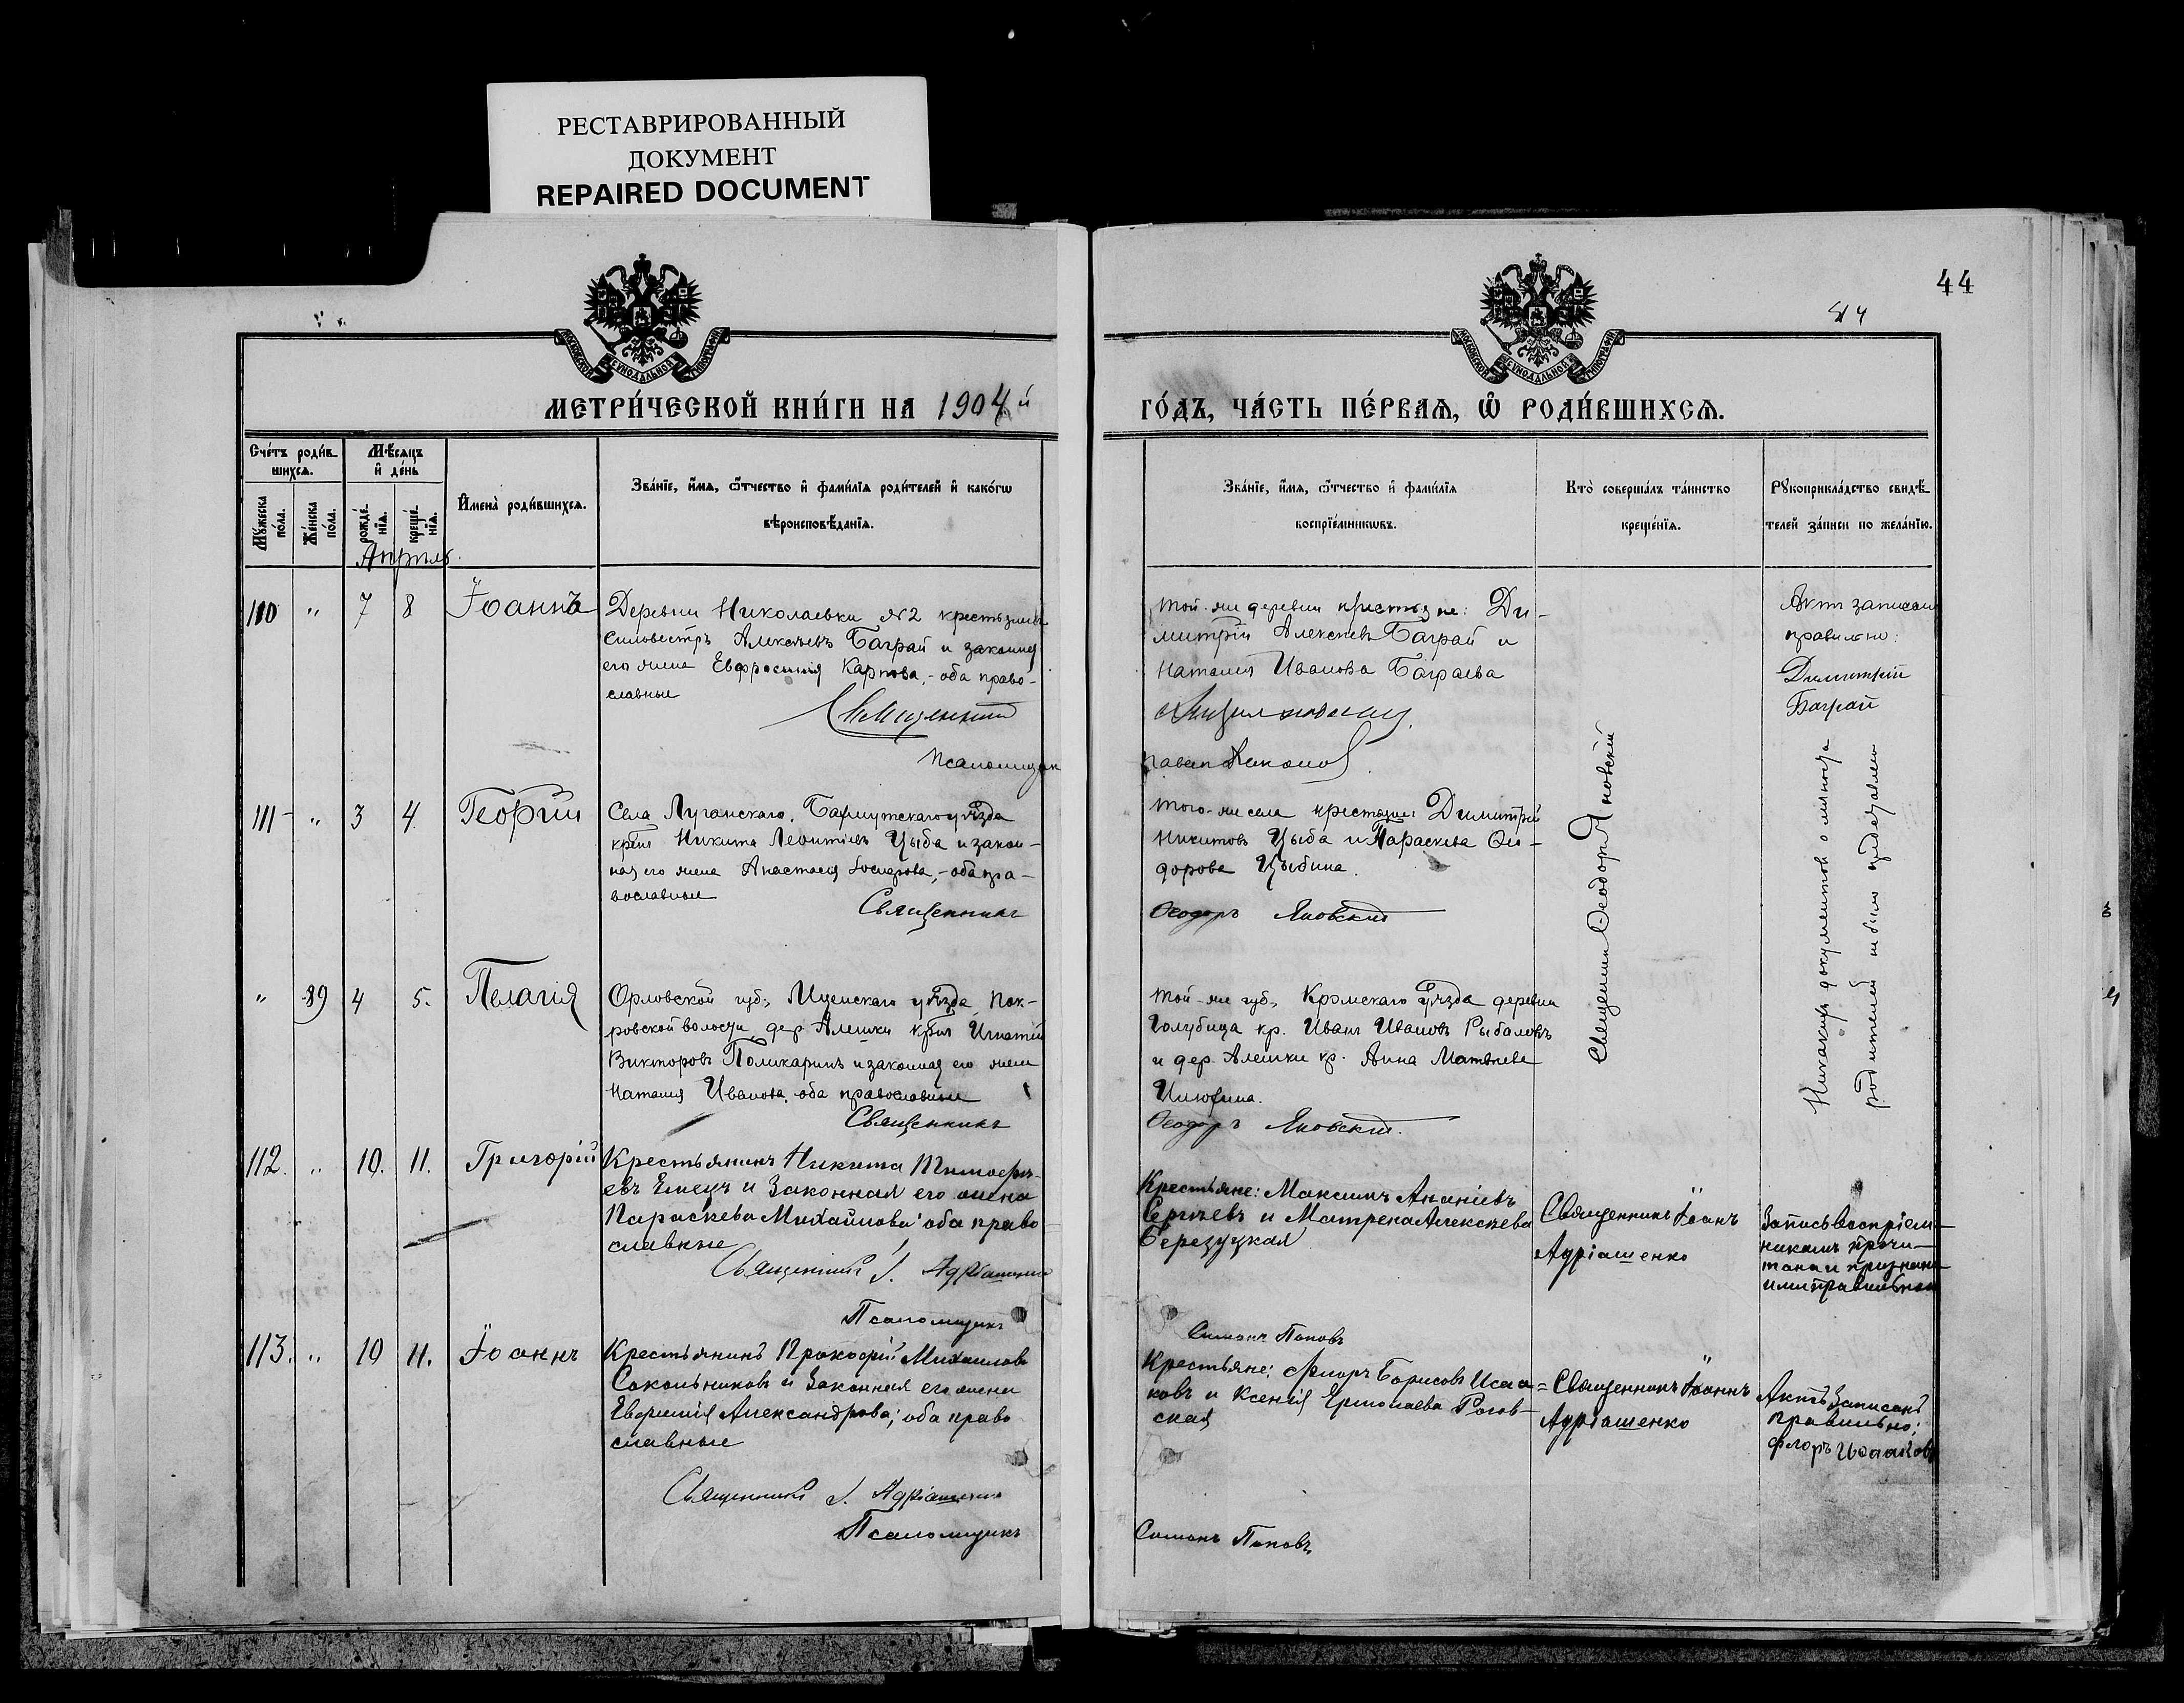 РЕСТАВРИРОВАННЫЙ
ДОКУМЕНТ
REPAIRED DOCUMENT
44
МОСКОВСКОЙ СѴНОДАЛЬНОЙ ТИПОГРАФІИ
МОСКОВСКОЙ СѴНОДАЛЬНОЙ ТИПОГРАФІИ
МЕТРИ́ЧЕСКОЙ КНИ́ГИ НА 1904й
ГО́ДЪ, ЧА́СТЬ ПЕ́РВАЯ, Ѽ РОДИ́ВШИХСЯ.
Сче́тъ роди́в-
шихся.
Мꙋ́жеска по́ла.
Же́нска по́ла.
Мѣ́сяцъ
и҆ де́нь
рожде́-
нїѧ.
креще́-
нїѧ.
Апрѣль.
И҆мена̀ роди́вшихся.
Зва́нїе, и҆́мя, ѻ҆́тчество и҆ фами́лїя роди́телей и҆ како́гѡ
вѣроисповѣ́данїя.
Зва́нїе, и҆́мя, ѻ҆́тчество и҆ фами́лїя
воспрїе́мникѡвъ.
Кто̀ соверша́лъ та́инство
креще́нїя.
Рꙋкоприкла́дство свидѣ́-
телей за́писи по жела́нїю.
110 " 7 8 Іоаннъ
Деревни Николаевки №2 крестьянинъ
Сильвестръ Алексѣевъ Баграй и законная
его жена Евфросинія Карпова, - оба право-
славные
Псаломщик
той-же деревни крестьяне: Ди-
митрій Алексѣевъ Баграй и
Наталія Иванова Баграева
Акт записан
правильно:
Димитрій
Баграй
111 " 3 4. Георгій
Села Луганскаго, Бахмутскаго уѣзда
крест. Никита Леонтіевъ Цыба и закон-
ная его жена Анастасія - оба пра-
вославные
Священникъ
того-же села крестьяне: Димитрій
Никитовъ Цыба и Параскева Ѳи-
дорова Цыбина.
Ѳеодоръ Яновскій
Священник Ѳеодоръ Яновскій
Никакихъ документов о личности
родителей не было предъявлено
" 89 4 5. Пелагія
Орловской губ., Мценскаго уѣзда Пок-
ровской волости, дер Алешки крест. Игнатій
Викторовъ Поликарпинъ и законная его жена
Наталія Иванова, оба православные
Священникъ
той-же губ., Кромскаго уѣзда деревни
Голубица кр. Иванъ Ивановъ Рыбаловъ
и дер. Алешки кр. Анна Матвѣева
Илюхина.
Ѳеодоръ Яновскій.
112. " 10. 11. Григорій
Крестьянинъ Никита Тимофѣ-
евъ Емецъ и Законная его жена
Параскева Михайлова; оба право
славные
Священникъ І. Адріашенко
Псаломщикъ
Крестьяне: Максимъ Ананіевъ
Сергѣевъ и Матрена Алексѣева
Березуцкая
Симонъ Поповъ
Священникъ Іоанъ
Адріашенко
Запись воспріем-
никамъ прочи-
тана и признана
ими правильной
113. " 10 11. Іоаннъ
Крестьянинъ Прокофій Михаиловъ
Сокольниковъ и Законная его жена
Евфимія Александрова; оба право
славные
Священникъ І. Адріашенко
Псаломщикъ
Крестьяне: Флоръ Борисовъ Исаа=
ковъ и Ксенія Ермолаева Рогов-
ская
Симонъ Поповъ
Священникъ Іоаннъ
Адріашенко
Актъ Записанъ
правильно:
Флоръ Исааковъ